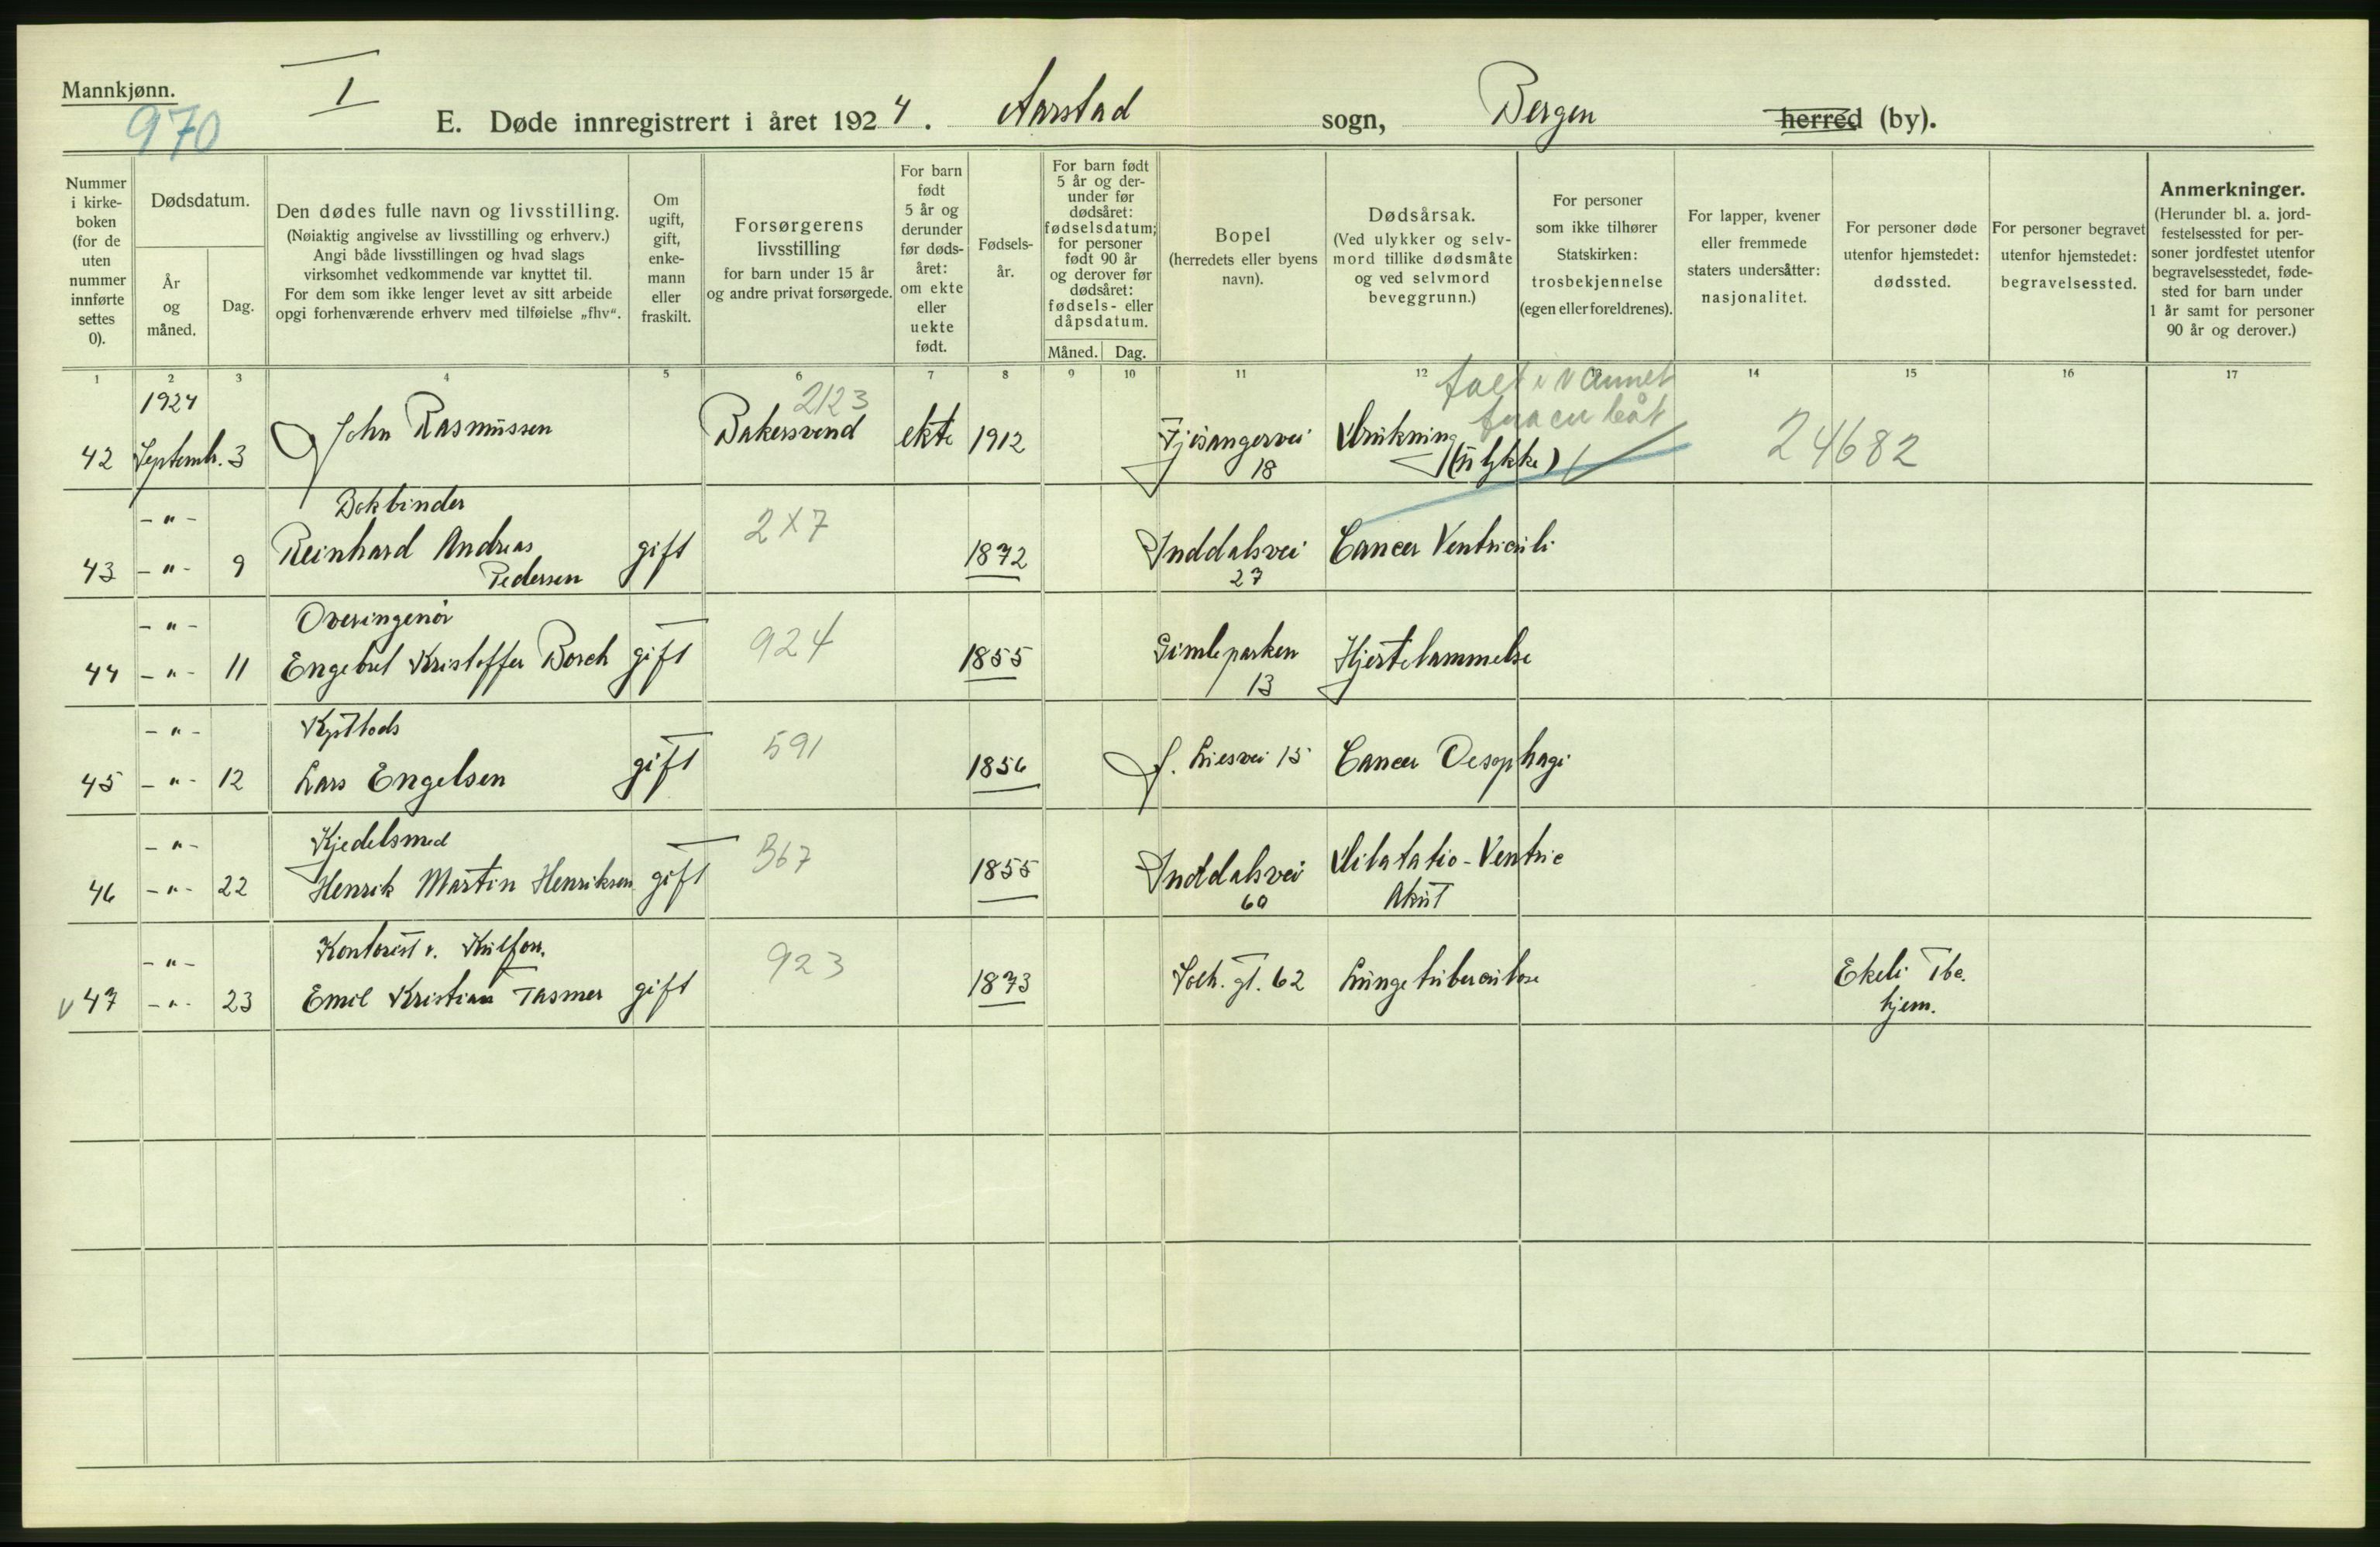 Mannkjønn.
970
I
E. Døde innregistrert i året 1924. Aarstad sogn, Bergen herred (by).
Nummer i kirke-boken (for de uten nummer innførte settes 0).
Dødsdatum.
År og måned.
Dag.
Den dødes fulle navn og livsstilling.
(Nøiaktig angivelse av livsstilling og erhverv.)
Angi både livsstillingen og hvad slags
virksomhet vedkommende var knyttet til.
For dem som ikke lenger levet av sitt arbeide
opgi forhenværende erhverv med tilføielse „fhv“.
Om ugift, gift, enke-mann eller fraskilt.
Forsørgerens livsstilling
for barn under 15 år
og andre privat forsørgede.
For barn født 5 år og derunder før døds-året: om ekte eller uekte født.
Fødsels-år.
For barn født 5 år og der-under før dødsåret: fødselsdatum; for personer født 90 år og derover før dødsåret: fødsels- eller dåpsdatum.
Måned. Dag.
Bopel
(herredets eller byens navn).
Dødsårsak.
(Ved ulykker og selv-mord tillike dødsmåte og ved selvmord beveggrunn.)
For personer som ikke tilhører Statskirken: trosbekjennelse (egen eller foreldrenes).
For lapper, kvener eller fremmede staters undersåtter: nasjonalitet.
For personer døde utenfor hjemstedet: dødssted.
For personer begravet utenfor hjemstedet: begravelsessted.
Anmerkninger.
(Herunder bl. a. jord-festelsessted for per-soner jordfestet utenfor begravelsesstedet, føde-sted for barn under 1 år samt for personer 90 år og derover.)
1 2 3 4 5 6 7 8 9 10 11 12 13 14 15 16 17
1924 2123 falt i vannet
fra en båt
42 Septemb. 3 John Rasmussen Bakersvend ekte 1912 Fjøsangervei 18 Drukning (ulykke) 24682
-"- Bokbinder
43 -"- 9 Reinhard Andreas Pedersen gift 2X7 1872 Inddalsvei 27 Cancer Ventriculi
-"- Overingeniør
44 -"- 11 Engebret Kristoffer Borch gift 924 1855 Gimleparken 13 Hjertelammelse
-"- Kystlods
45 -"- 12 Lars Engelsen gift 591 1856 J. Liesvei 15 Cancer Oesophagi
-"- Kjedelsmed
46 -"- 22 Henrik Martin Henriksen gift 367 1855 Inddalsvei 60 Dilatatio-Ventric Akut
-"- Kontorist v. Kulforr.
v 47 -"- 23 Emil Kristian Tasmer gift 923 1873 Solh. gt. 62 Lungetuberculose Ekeli Tbc. hjem.